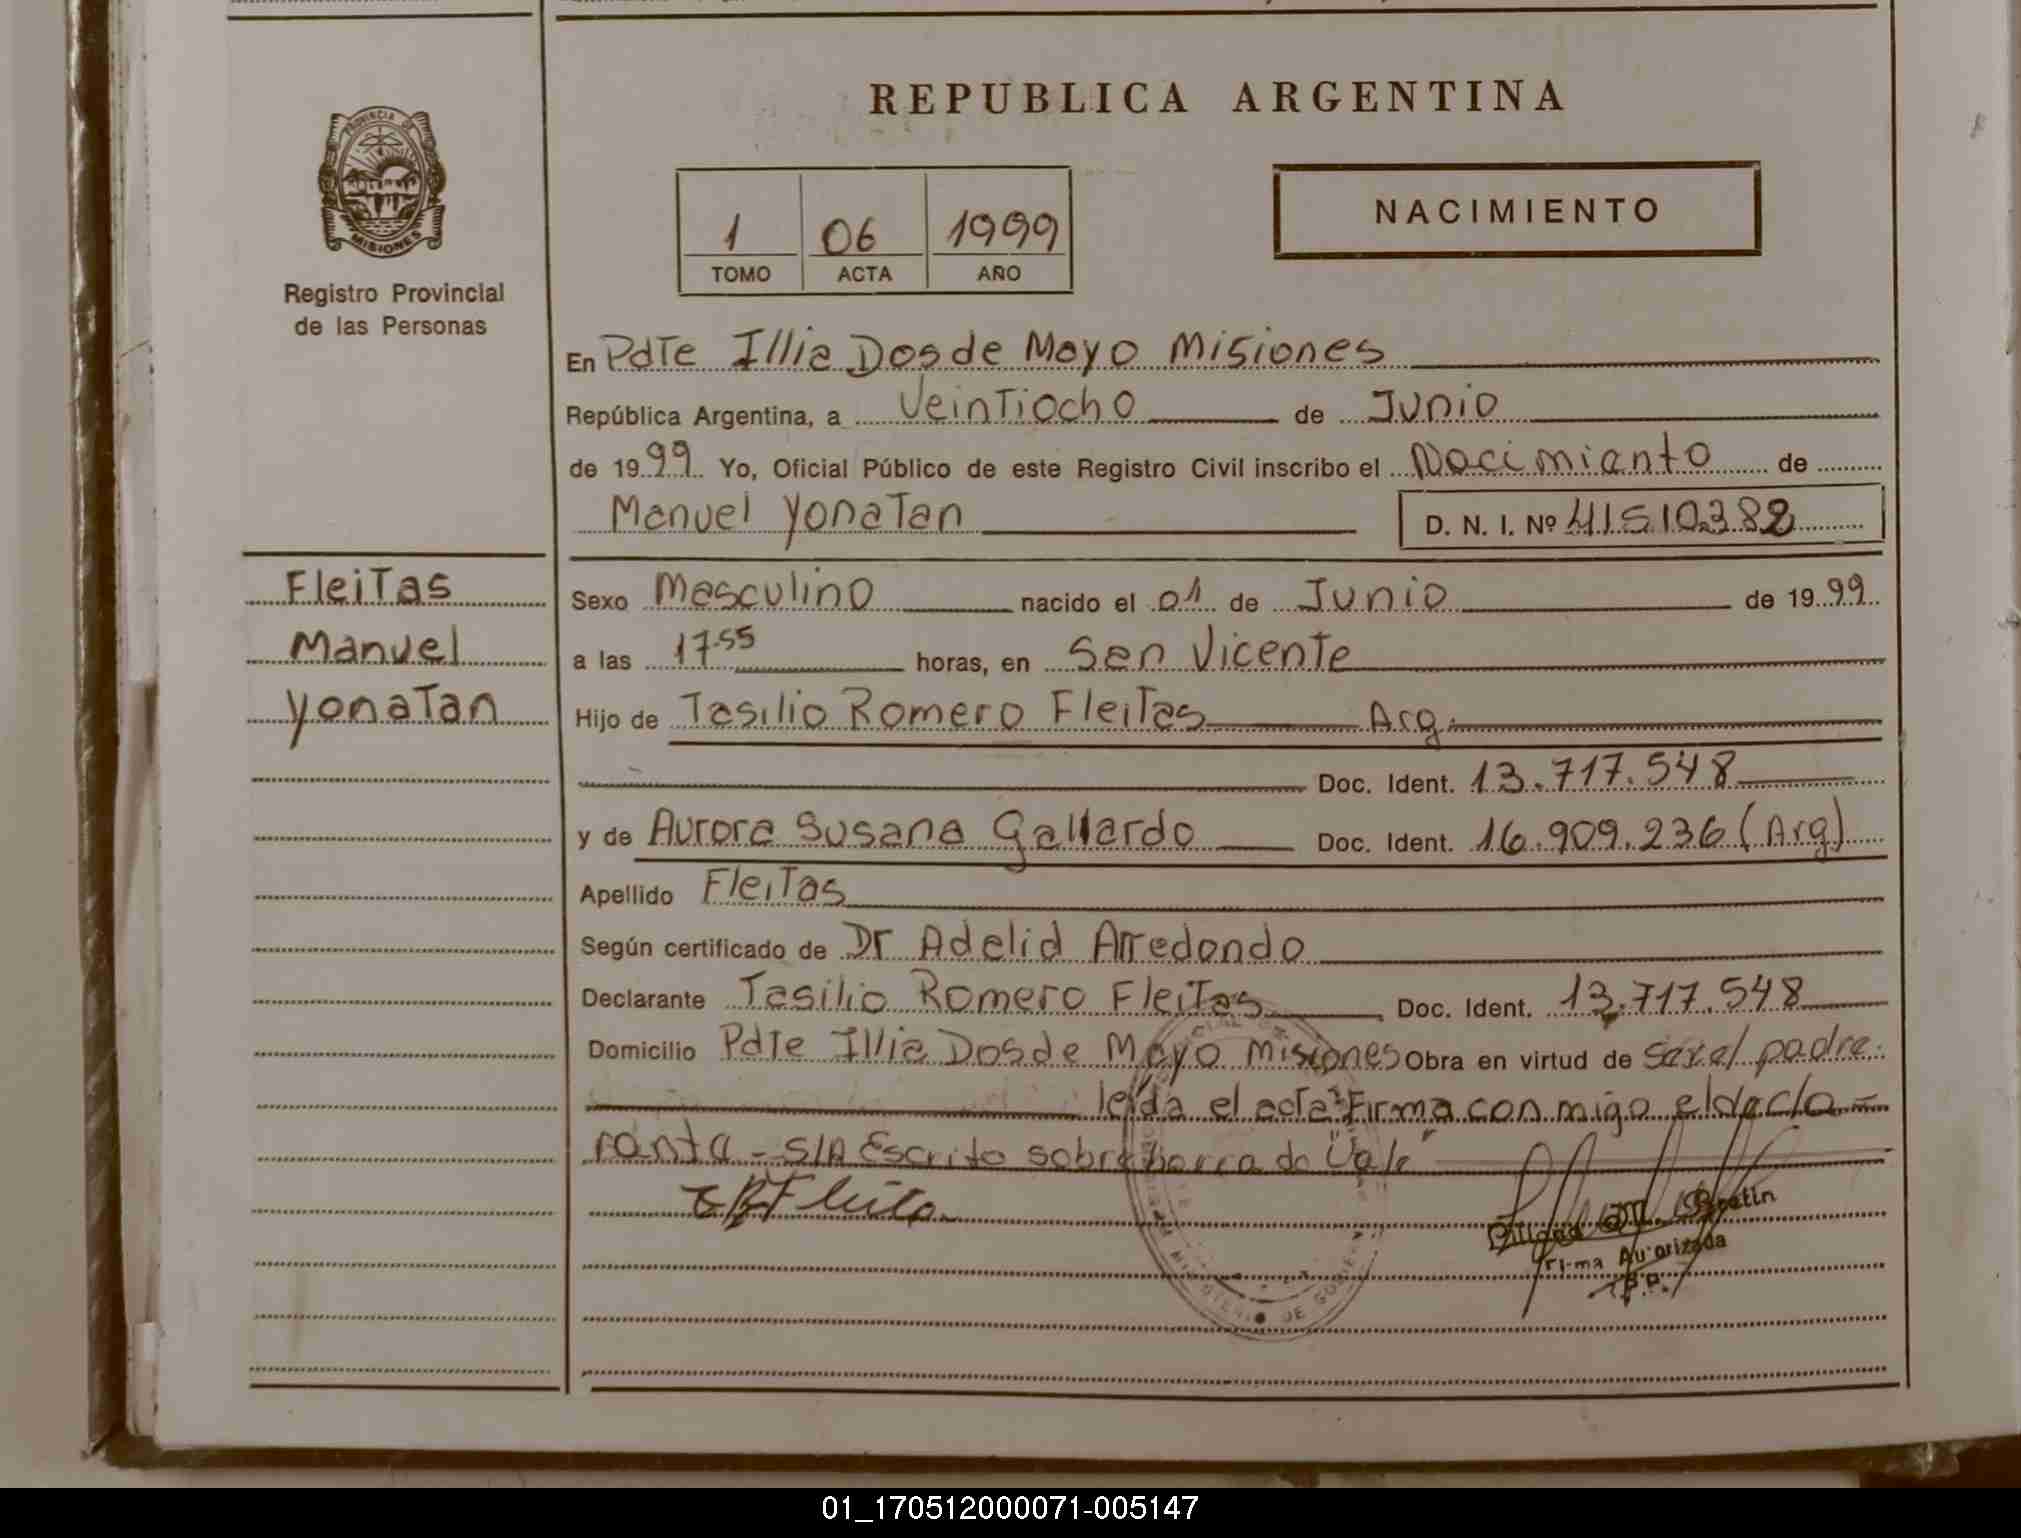 REPUBLICA ARGENTINA
PROVINCIA DE
MISIONES
Registro Provincial
de las Personas
1 06 1999
TOMO ACTA AÑO
NACIMIENTO
En Pdte Illia Dos de Mayo Misiones
República Argentina, a Veintiocho de Junio
de 1999 Yo, Oficial Público de este Registro Civil inscribo el Nacimiento de
Manuel Yonatan D. N. I. Nº 41510382
Fleitas
Manuel
Yonatan
Sexo Masculino nacido el 01 de Junio de 1999
a las 17.55 horas, en San Vicente
Hijo de Tasilio Romero Fleitas Arg.
Doc. Ident. 13.717.548
y de Aurora Susana Gallardo Doc. Ident. 16.909.236 (Arg)
Apellido Fleitas
Según certificado de Dr Adelid Arredondo
Declarante Tasilio Romero Fleitas Doc. Ident. 13.717.548
Domicilio Pdte Illia Dos de Mayo Misiones Obra en virtud de ser el padre.
leída el acta Firma con migo el decla-
rante - S/A Escrito sobre borrado "Vale"
MINISTERIO DE GOBIERNO
Firma Autorizada
01_170512000071-005147